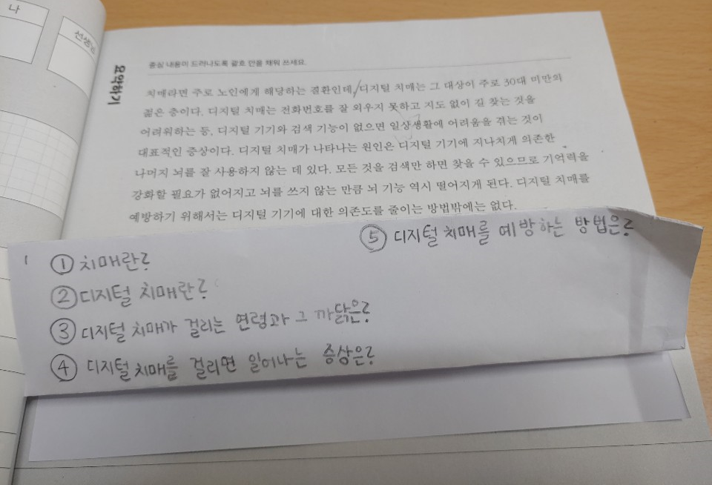 나
선생님
요약하기
중심 내용이 드러나도록 괄호 안을 채워 쓰세요.
치매라면 주로 노인에게 해당하는 질환인데, 디지털 치매는 그 대상이 주로 30대 미만의
젊은 층이다. 디지털 치매는 전화번호를 잘 외우지 못하고 지도 없이 길 찾는 것을
어려워하는 등, 디지털 기기와 검색 기능이 없으면 일상생활에 어려움을 겪는 것이
대표적인 증상이다. 디지털 치매가 나타나는 원인은 디지털 기기에 지나치게 의존한
나머지 뇌를 잘 사용하지 않는 데 있다. 모든 것을 검색만 하면 찾을 수 있으므로 기억력을
강화할 필요가 없어지고 뇌를 쓰지 않는 만큼 뇌 기능 역시 떨어지게 된다. 디지털 치매를
예방하기 위해서는 디지털 기기에 대한 의존도를 줄이는 방법밖에는 없다.
① 치매란?
② 디지털 치매란?
③ 디지털 치매가 걸리는 연령과 그 까닭은?
④ 디지털 치매를 걸리면 일어나는 증상은?
⑤ 디지털 치매를 예방하는 방법은?